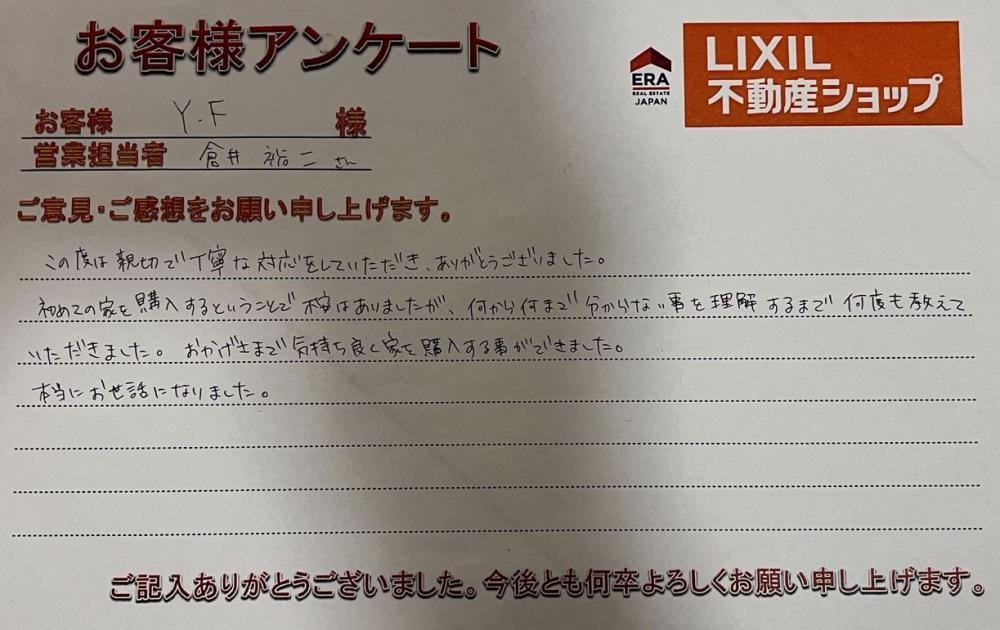 お客様アンケート
ERA
REAL ESTATE
JAPAN
LIXIL
不動産ショップ
お客様 Y.F 様
営業担当者 倉井 裕二 さん
ご意見・ご感想をお願い申し上げます。
この度は親切で丁寧な対応をしていただき、ありがとうございました。
初めての家を購入するということで不安はありましたが、何から何まで分からない事を理解するまで何度も教えて
いただきました。おかげさまで気持ち良く家を購入する事ができました。
本当にお世話になりました。
ご記入ありがとうございました。今後とも何卒よろしくお願い申し上げます。